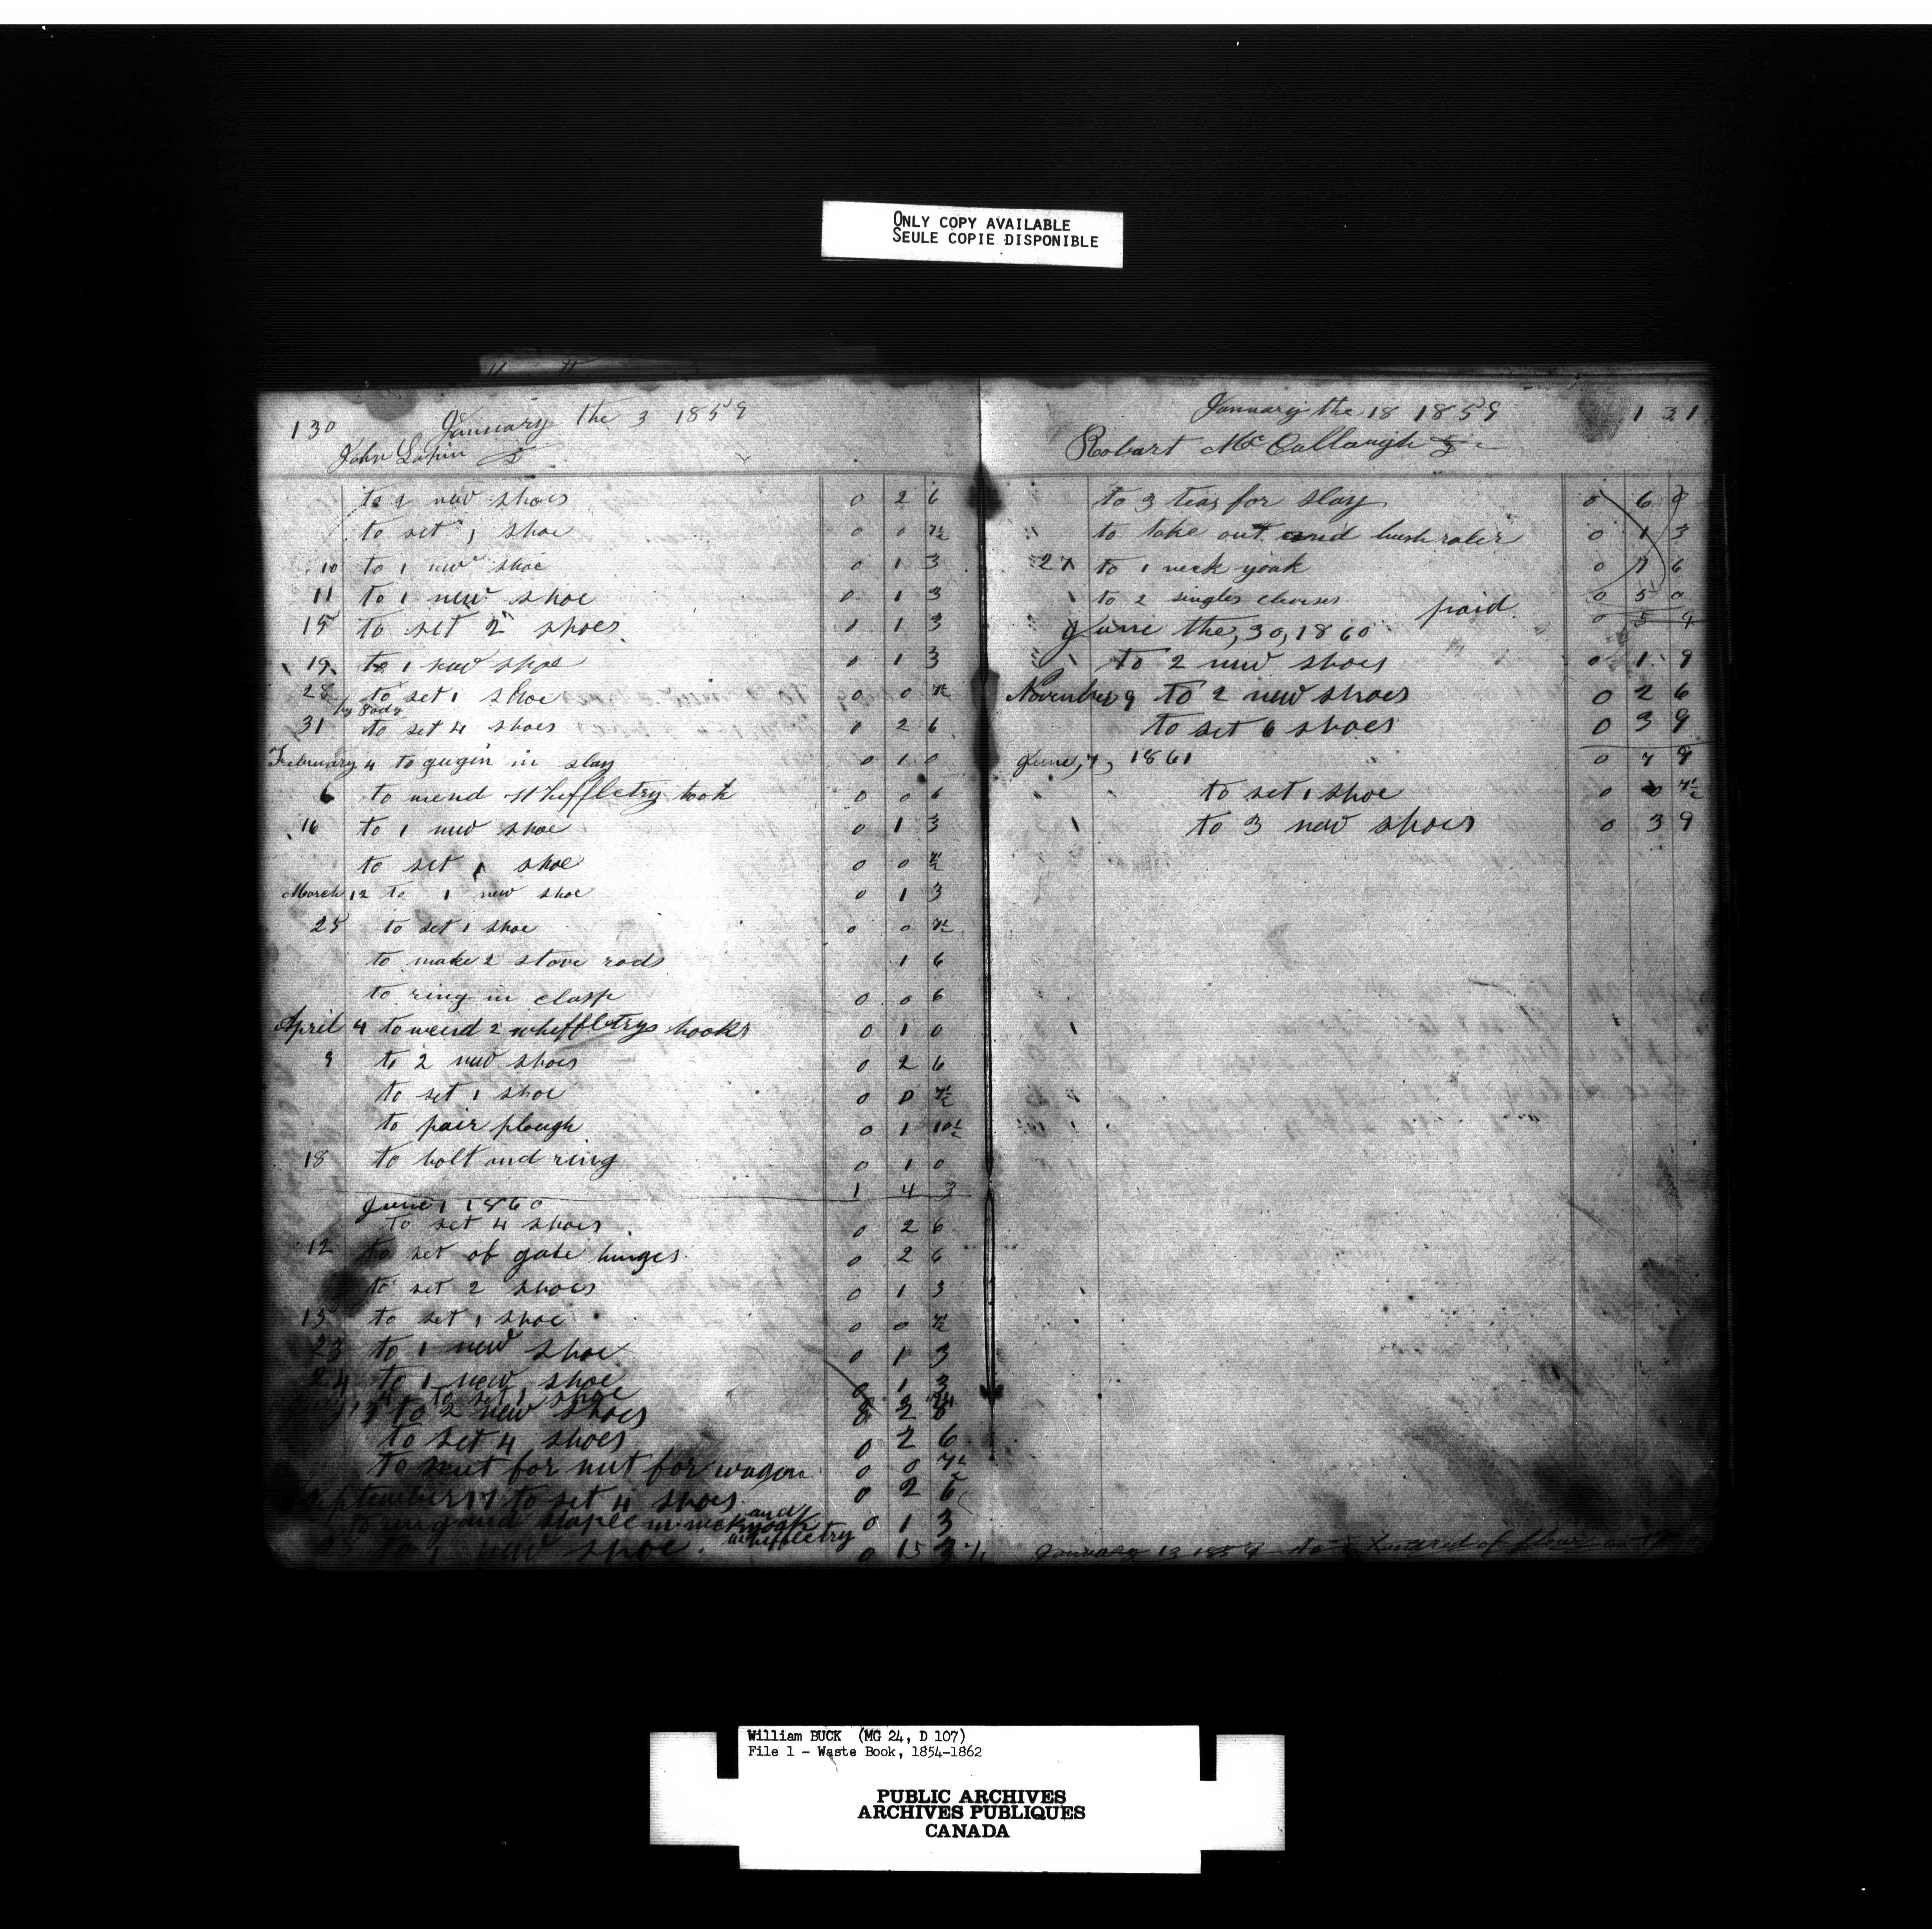 ONLY COPY AVAILABLE
SEULE COPIE DISPONIBLE
130 January the 3 1859
John Lapin
to 2 new shoes 0 2 6
to set 1 shoe 0 0 7½
10 to 1 new shoe 0 1 3
11 to 1 new shoe 0 1 3
15 to set 2 shoes 0 1 3
19 to 1 new shoe 0 1 3
28 to set 1 shoe 0 0 7½
by Body
31 to set 4 shoes 0 2 6
February 4 to gugin in slay 0 1 0
6 to mend Wheffletry hook 0 0 6
16 to 1 new shoe 0 1 3
to set 1 shoe 0 0 7½
March 12 to 1 new shoe 0 1 3
25 to set 1 shoe 0 0 7½
to make 2 stove rods 1 6
to ring in clasp 0 0 6
April 4 to weend 2 wheffletrys hooks 0 1 0
9 to 2 new shoes 0 2 6
to set 1 shoe 0 0 7½
to pair plough 0 1 10½
18 to bolt and ring 0 1 0
1 4 3
June 1 1860
to set 4 shoes 0 2 6
12 to set of gate hinges 0 2 6
to set 2 shoes 0 1 3
15 to set 1 shoe 0 0 7½
23 to 1 new shoe 0 1 3
24 to 1 new shoe 0 1 3
to set 1 shoe
to 2 new shoes 2
to set 4 shoes 0 2 6
to nut for nut for wagon 0 0 7½
September 17 to set 4 shoes 0 2 6
to ring and staple in neck yoak and wheffletry 0 1 3
28 to 1 new shoe. 0 15
January the 18 1859 131
Robart McCullaugh
to 3 teas for slay 0 6 9
to take out and bush roler 0 1 3
27 to 1 neck yoak 0 7 6
to 2 singles clevises 0 5 0
paid 0 5 9
June the, 30, 1860
to 2 new shoes 0 1 9
November 9 to 2 new shoes 0 2 6
to set 6 shoes 0 3 9
June, 7, 1861 0 7 9
to set 1 shoe 0 0 7½
to 3 new shoes 0 3 9
January 13 185 to hundred of flour
William BUCK (MG 24, D 107)
File 1 - Waste Book, 1854-1862
PUBLIC ARCHIVES
ARCHIVES PUBLIQUES
CANADA